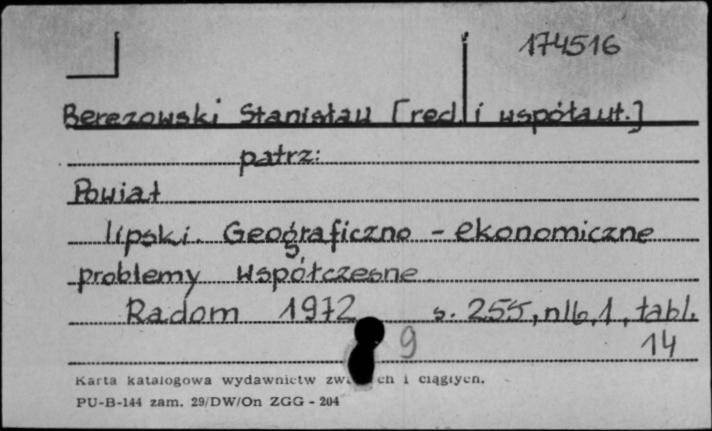 174516
Berezowski Stanisław [red. i współaut.]
patrz:
Powiat
lipski. Geograficzno - ekonomiczne
problemy współczesne
Radom 1972 s. 255, nlb, 1, tabl.
9 14
Karta katalogowa wydawnictw ch i ciągłych.
PU-B-144 zam. 29/DW/On ZGG - 204